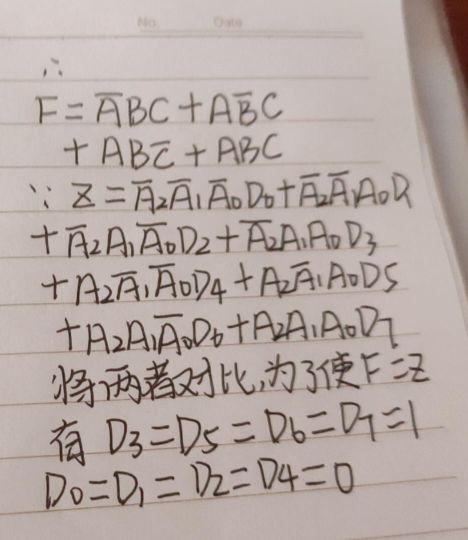 No.    Date
∴
F = A̅BC + AB̅C
+ ABC̅ + ABC
∵ Z = A̅₂A̅₁A̅₀D₀ + A̅₂A̅₁A₀D₁
+ A̅₂A₁A̅₀D₂ + A̅₂A₁A₀D₃
+ A₂A̅₁A̅₀D₄ + A₂A̅₁A₀D₅
+ A₂A₁A̅₀D₆ + A₂A₁A₀D₇
将两者对比,为了使F=Z
有 D₃=D₅=D₆=D₇=1
D₀=D₁=D₂=D₄=0